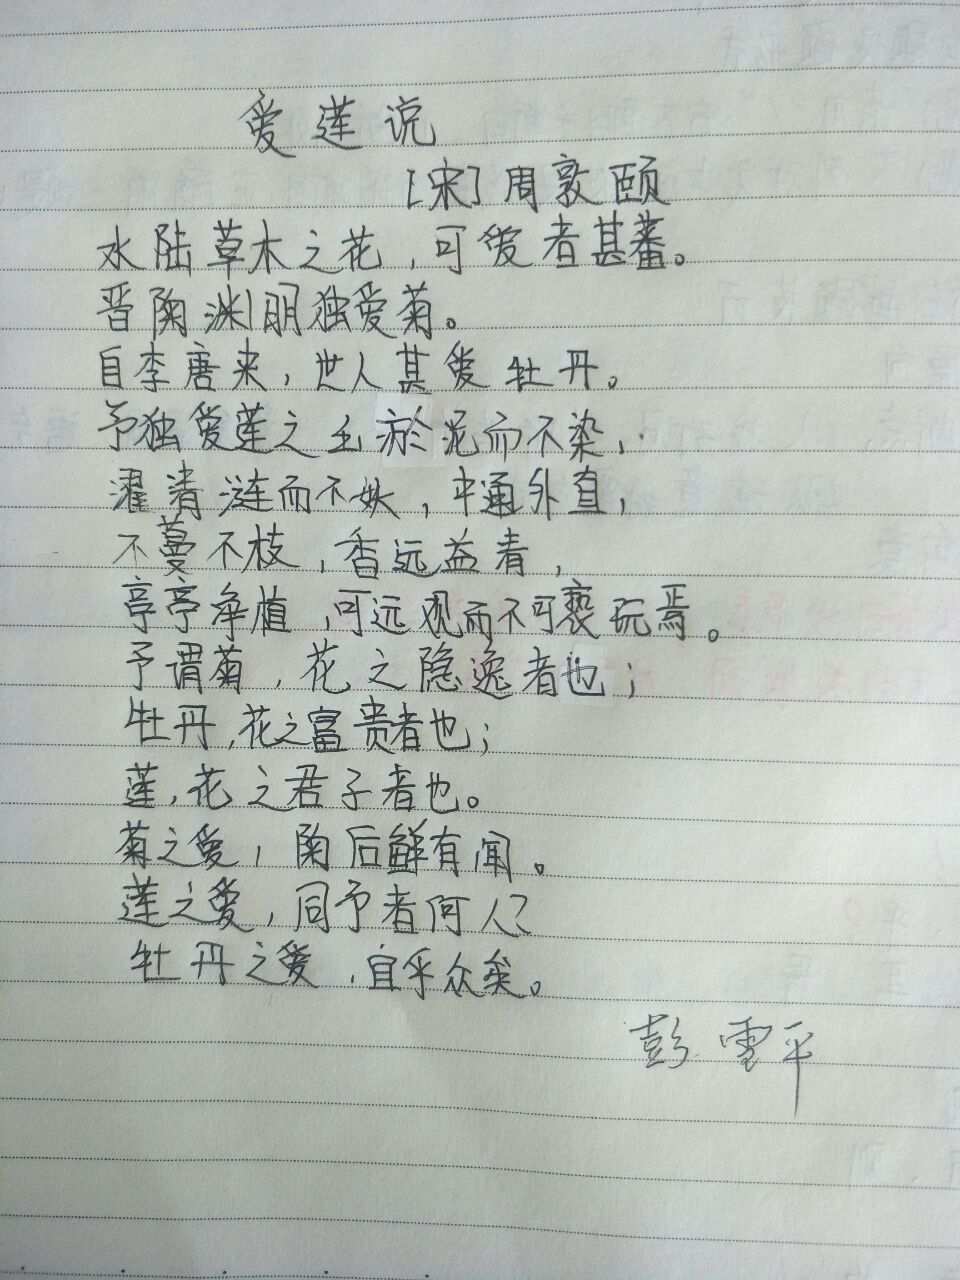 爱莲说
[宋]周敦颐
水陆草木之花，可爱者甚蕃。
晋陶渊明独爱菊。
自李唐来，世人甚爱牡丹。
予独爱莲之出淤泥而不染，
濯清涟而不妖，中通外直，
不蔓不枝，香远益青，
亭亭净植，可远观而不可亵玩焉。
予谓菊，花之隐逸者也；
牡丹，花之富贵者也；
莲，花之君子者也。
菊之爱，陶后鲜有闻。
莲之爱，同予者何人？
牡丹之爱，宜乎众矣。
彭雪平